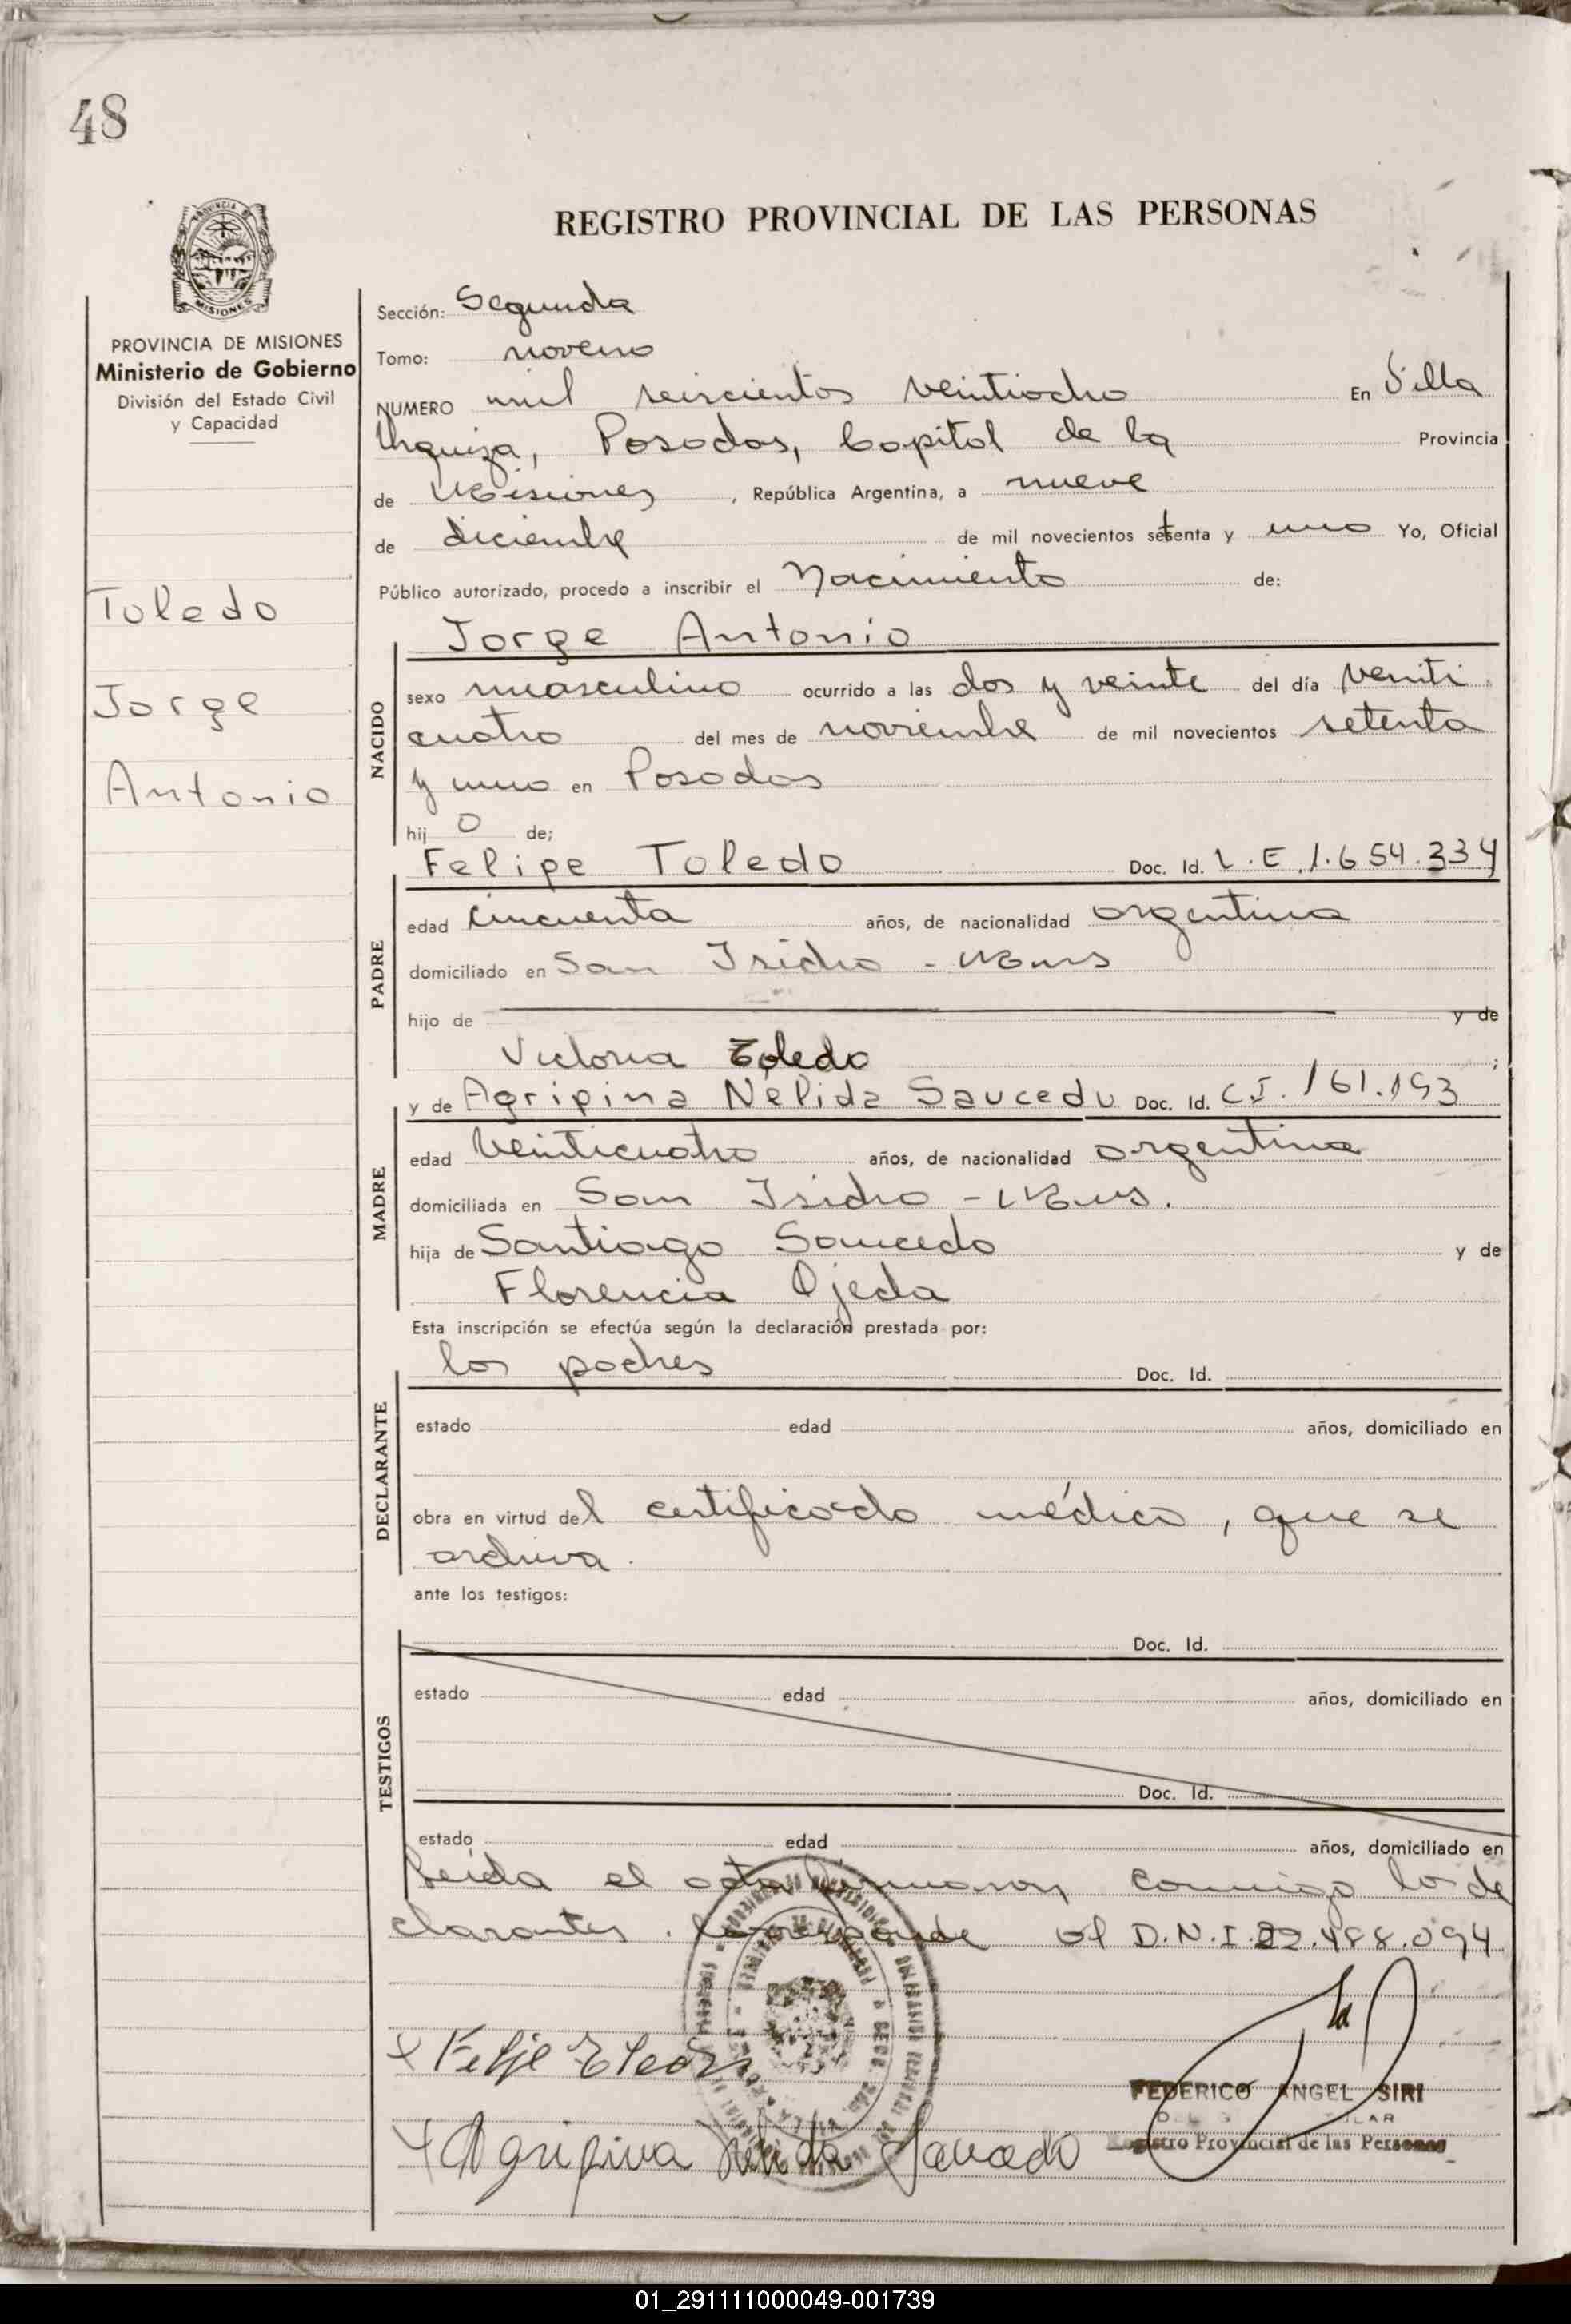 48
REGISTRO PROVINCIAL DE LAS PERSONAS
PROVINCIA DE MISIONES
Ministerio de Gobierno
División del Estado Civil
y Capacidad
Toledo
Jorge
Antonio
Sección: Segunda
Tomo: noveno
NUMERO mil seiscientos veintiocho En Villa
Urquiza, Posadas, Capital de la Provincia
de Misiones, República Argentina, a nueve
de diciembre de mil novecientos setenta y uno Yo, Oficial
Público autorizado, procedo a inscribir el Nacimiento de:
Jorge Antonio
NACIDO
sexo masculino ocurrido a las dos y veinte del día veinti
cuatro del mes de noviembre de mil novecientos setenta
y uno en Posadas
hij o de;
Felipe Toledo Doc. Id. L.E 1.654.334
PADRE
edad cincuenta años, de nacionalidad argentina
domiciliado en San Isidro - Mnes
hijo de y de
Victoria Toledo ;
y de Agripina Nélida Saucedo Doc. Id. C.I. 161.193
MADRE
edad veinticuatro años, de nacionalidad argentina
domiciliada en San Isidro - Mnes.
hija de Santiago Saucedo y de
Florencia Ojeda
Esta inscripción se efectúa según la declaración prestada por:
los padres Doc. Id.
DECLARANTE
estado edad años, domiciliado en
obra en virtud del certificado médico, que se
archiva.
ante los testigos:
TESTIGOS
Doc. Id.
estado edad años, domiciliado en
Doc. Id.
estado edad años, domiciliado en
Leída el acta firmaron conmigo los de
clarantes. Corresponde al D.N.I. 22.488.094
x Felipe Toledo
FEDERICO ANGEL SIRI
Registro Provincial de las Personas
x Agripina Nelida Saucedo
01_291111000049-001739